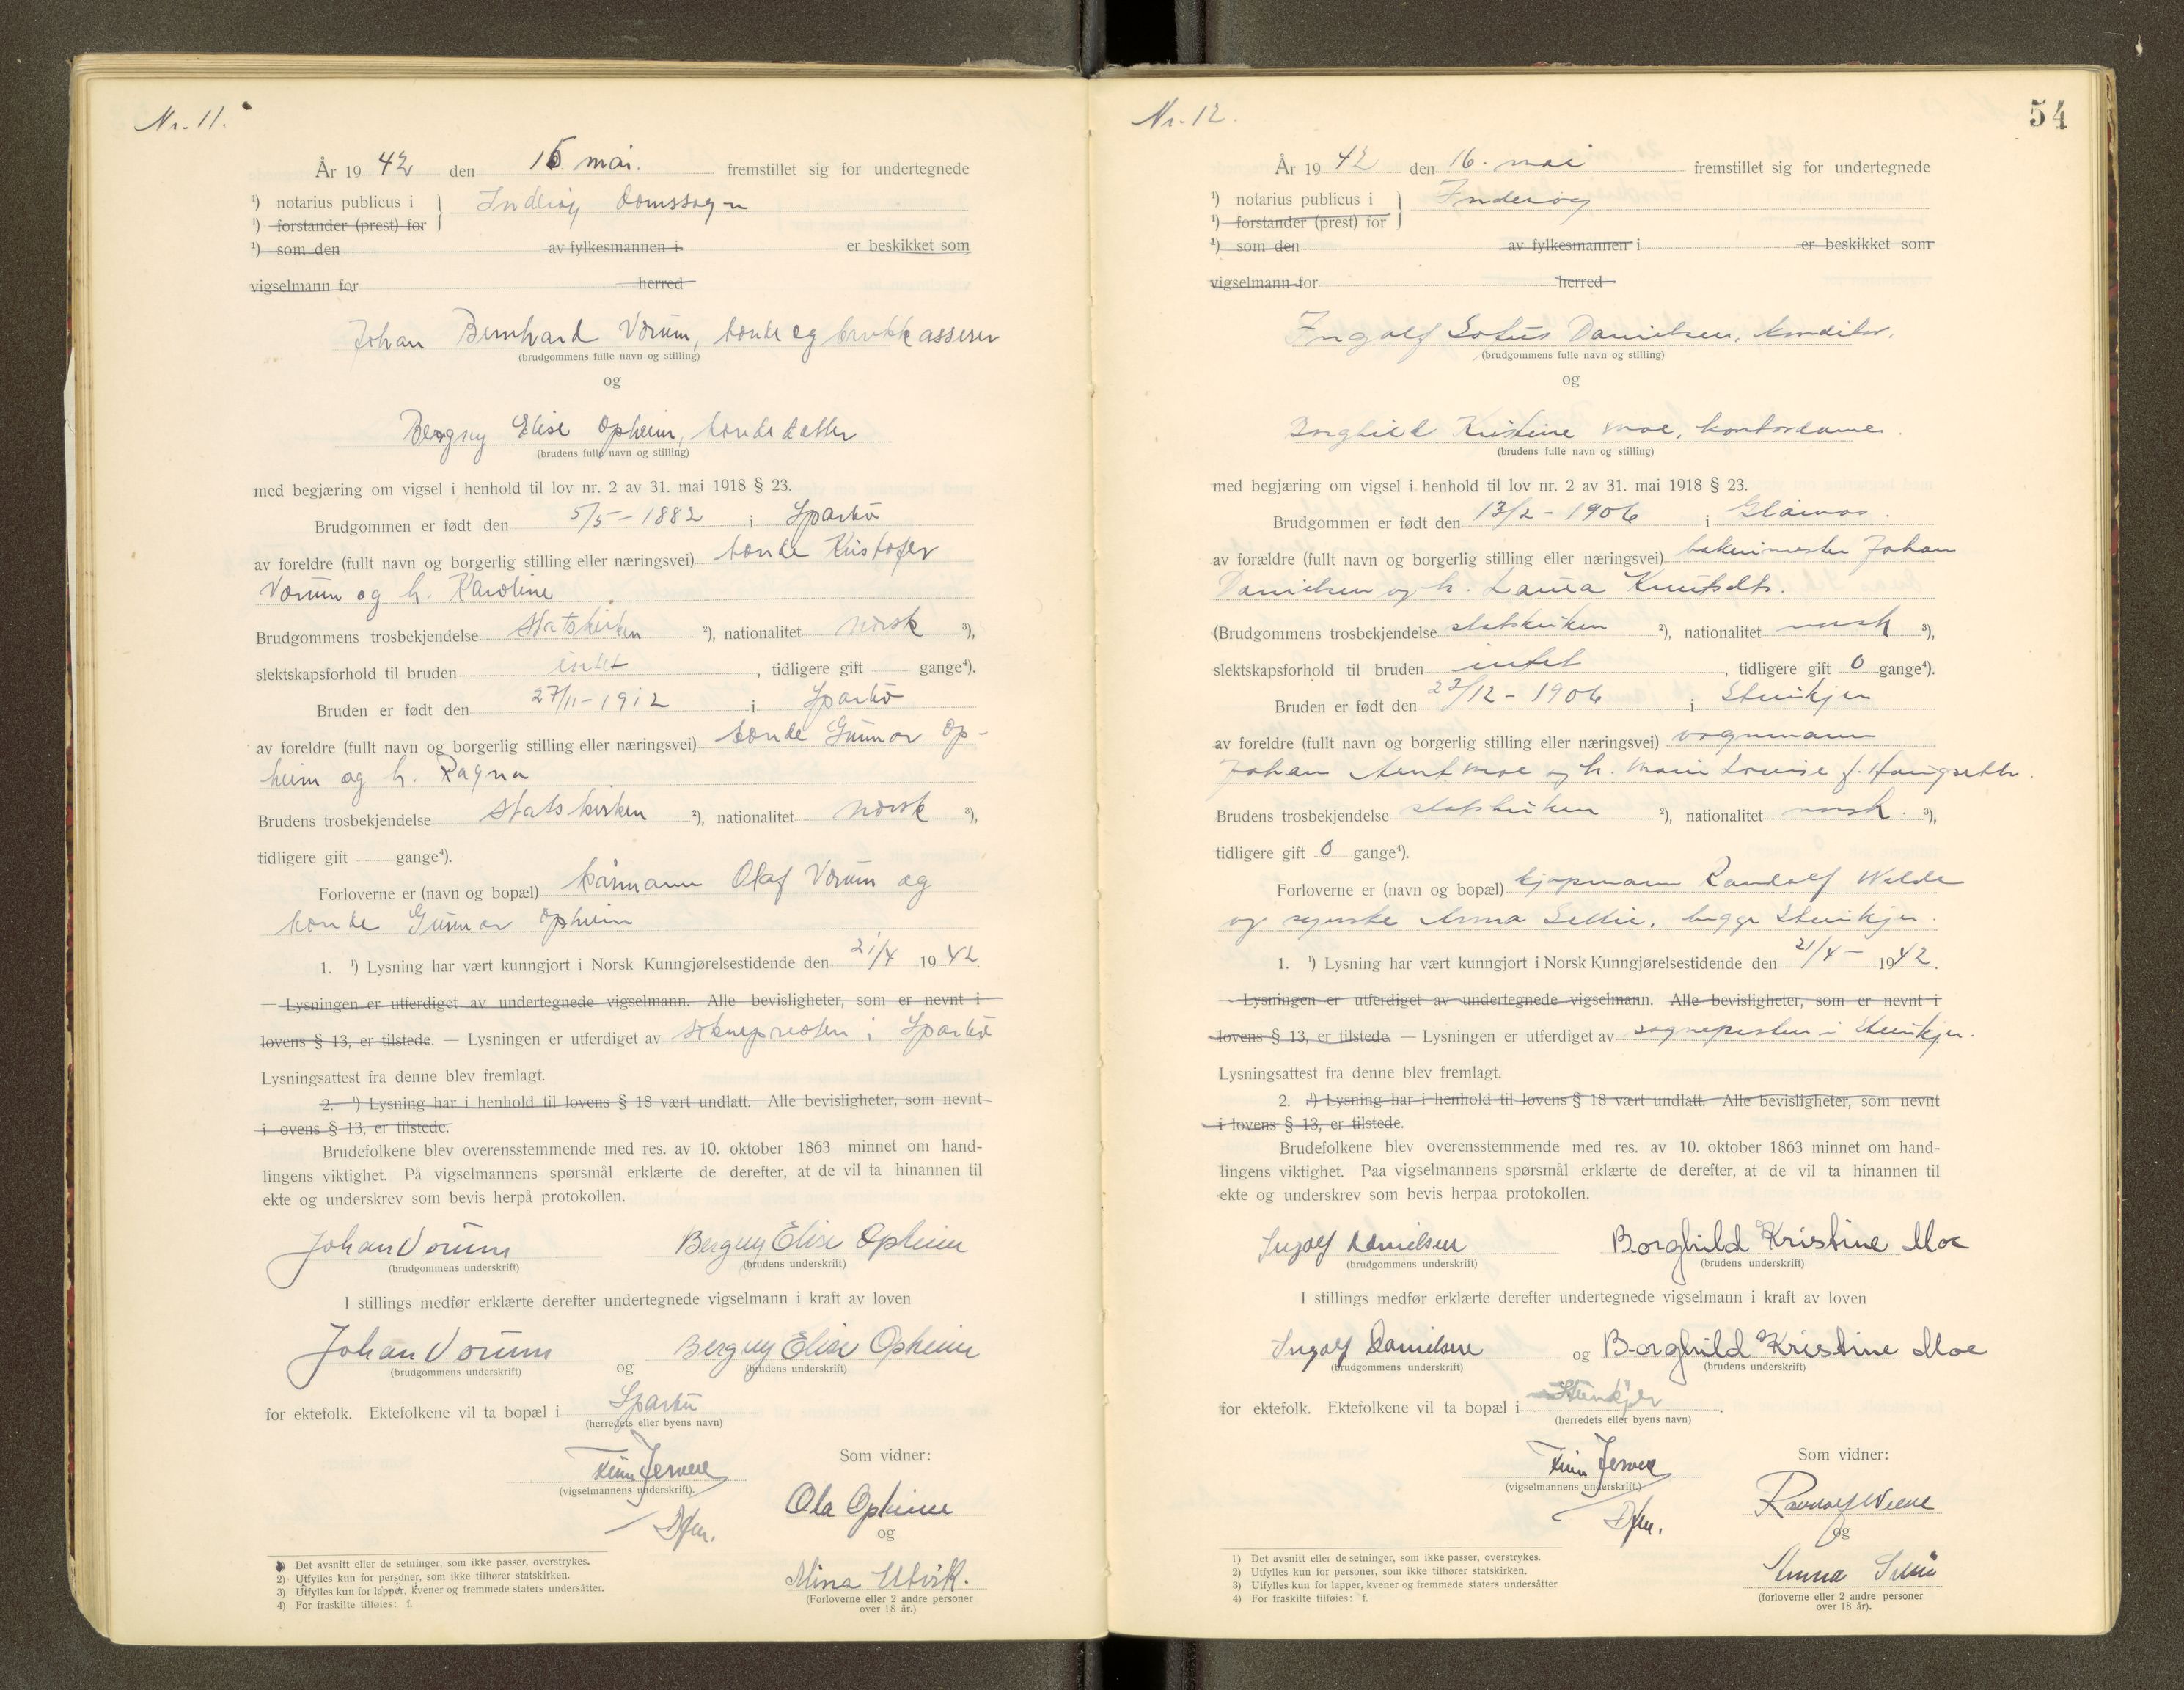 Nr. 11.
År 1942 den 16. mai. fremstillet sig for undertegnede
¹) notarius publicus i } Inderøy domssogn
¹) forstander (prest) for
¹) som den av fylkesmannen i er beskikket som
vigselmann for herred
Johan Bernhard Vorum, bonde og brukkasserer
(brudgommens fulle navn og stilling)
og
Bergny Elise Opheim, bondedatter
(brudens fulle navn og stilling)
med begjæring om vigsel i henhold til lov nr. 2 av 31. mai 1918 § 23.
Brudgommen er født den 5/5-1882 i Sparbu
av foreldre (fullt navn og borgerlig stilling eller næringsvei) bonde Kristofer
Vorum og h. Karoline
Brudgommens trosbekjendelse Statskirken ²), nationalitet norsk ³),
slektskapsforhold til bruden intet, tidligere gift gange⁴).
Bruden er født den 27/11-1912 i Sparbu
av foreldre (fullt navn og borgerlig stilling eller næringsvei) bonde Gunnar Op-
heim og h. Ragna
Brudens trosbekjendelse Statskirken ²), nationalitet norsk ³),
tidligere gift gange⁴).
Forloverne er (navn og bopæl) kårmann Olaf Vorum og
bonde Gunnar Opheim
1. ¹) Lysning har vært kunngjort i Norsk Kunngjørelsestidende den 21/4 1942.
— Lysningen er utferdiget av undertegnede vigselmann. Alle bevisligheter, som er nevnt i
lovens § 13, er tilstede. — Lysningen er utferdiget av soknepresten i Sparbu
Lysningsattest fra denne blev fremlagt.
2. ¹) Lysning har i henhold til lovens § 18 vært undlatt. Alle bevisligheter, som nevnt
i ovens § 13, er tilstede.
Brudefolkene blev overensstemmende med res. av 10. oktober 1863 minnet om hand-
lingens viktighet. På vigselmannens spørsmål erklærte de derefter, at de vil ta hinannen til
ekte og underskrev som bevis herpå protokollen.
Johan Vorum Bergny Elise Opheim
(brudgommens underskrift) (brudens underskrift)
I stillings medfør erklærte derefter undertegnede vigselmann i kraft av loven
Johan Vorum og Bergny Elise Opheim
(brudgommens underskrift) (brudens underskrift)
for ektefolk. Ektefolkene vil ta bopæl i Sparbu
(herredets eller byens navn)
Som vidner:
Finn Jervell
(vigselmannens underskrift).
Dfm.
Ola Opheim
og
Mina Utvik.
(Forloverne eller 2 andre personer
over 18 år.)
1) Det avsnitt eller de setninger, som ikke passer, overstrykes.
2) Utfylles kun for personer, som ikke tilhører statskirken.
3) Utfylles kun for lapper, kvener og fremmede staters undersåtter.
4) For fraskilte tilføies: f.
Nr. 12.
54
År 1942 den 16. mai fremstillet sig for undertegnede
¹) notarius publicus i } Inderøy
¹) forstander (prest) for
²) som den av fylkesmannen i er beskikket som
vigselmann for herred
Ingolf Sofus Danielsen, konditor.
(brudgommens fulle navn og stilling)
og
Borghild Kristine Moe, kontordame.
(brudens fulle navn og stilling)
med begjæring om vigsel i henhold til lov nr. 2 av 31. mai 1918 § 23.
Brudgommen er født den 13/2-1906 i Glåmos.
av forældre (fullt navn og borgerlig stilling eller næringsvei) bakermester Johan
Danielsen og h. Laura Knutsdtr.
(Brudgommens trosbekjendelse statskirken ²), nationalitet norsk ³),
slektskapsforhold til bruden intet, tidligere gift 0 gange⁴).
Bruden er født den 27/12-1906 i Steinkjer
av foreldre (fullt navn og borgerlig stilling eller næringsvei) vognmann
Johan Arnt Moe og h. Marie Lovise f. Haugseth.
Brudens trosbekjendelse statskirken ²), nationalitet norsk. ³),
tidligere gift 0 gange⁴).
Forloverne er (navn og bopæl) kjøpmann Randolf Welde
og syerske Anna Selliæ, begge Steinkjer.
1. ¹) Lysning har vært kunngjort i Norsk Kunngjørelsestidende den 21/4- 1942.
- Lysningen er utferdiget av undertegnede vigselmann. Alle bevisligheter, som er nevnt i
lovens § 13, er tilstede. — Lysningen er utferdiget av sognepresten i Steinkjer.
Lysningsattest fra denne blev fremlagt.
2. ¹) Lysning har i henhold til lovens § 18 vært undlatt. Alle bevisligheter, som nevnt
i lovens § 13, er tilstede.
Brudefolkene blev overensstemmende med res. av 10. oktober 1863 minnet om hand-
lingens viktighet. Paa vigselmannens spørsmål erklærte de derefter, at de vil ta hinannen til
ekte og underskrev som bevis herpaa protokollen.
Ingolf Danielsen Borghild Kristine Moe
(brudgommens underskrift) (brudens underskrift)
I stillings medfør erklærte derefter undertegnede vigselmann i kraft av loven
Ingolf Danielsen og Borghild Kristine Moe
(brudgommens underskrift) (brudens underskrift)
for ektefolk. Ektefolkene vil ta bopæl i Steinkjer.
(herredets eller byens navn)
Som vidner:
Finn Jervell
(vigselmannens underskrift.)
Dfm.
Randolf Welde
og
Anna
(forloverne eller 2 andre personer
over 18 år).
1) Det avsnitt eller de setninger, som ikke passer, overstrykes.
2) Utfylles kun for personer, som ikke tilhører statskirken.
3) Utfylles kun for lapper, kvener og fremmede staters undersåtter
4) For fraskilte tilføies: f.